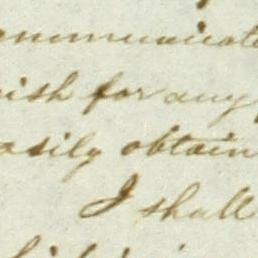 communicate
wish for any
easily obtain
I shall